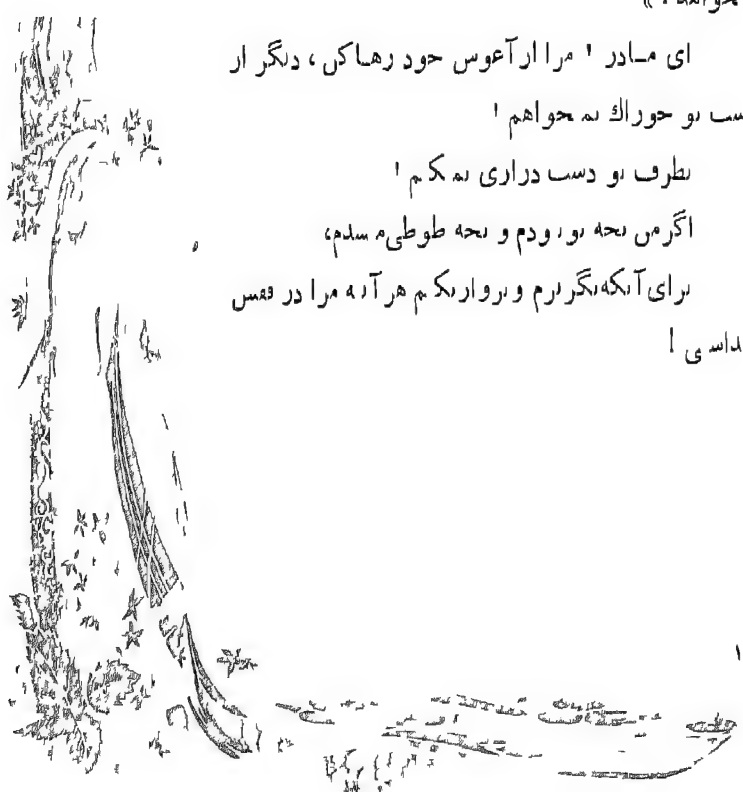 ای مادر ! مرا از آغوش خود رها کن ، دیگر از
تو خوراك نمیخواهم !
بطرف تو دست درازی نمیکنم !
اگر من بچه تو نبودم و بچه طوطی میشدم،
برای آنکه نگریزم و پرواز نکنم هر آینه مرا در قفس
!
۱